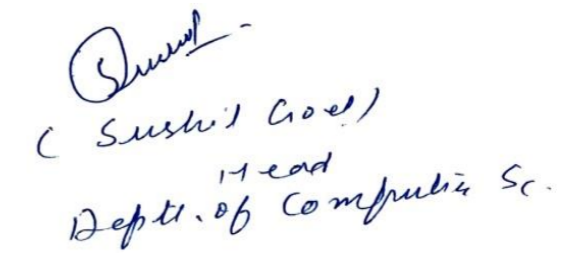 ( Sushil Goel)
Head
Deptt. of Computer Sc.